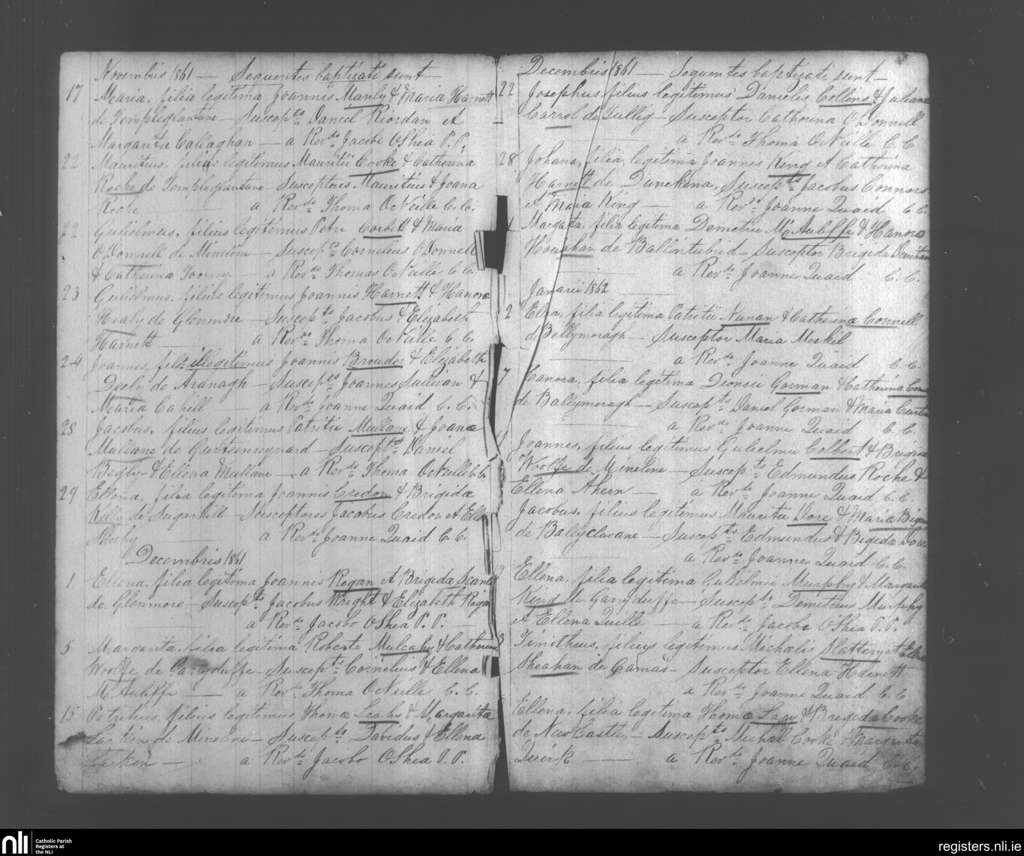 Novembris 1861 — Sequentes baptizati sunt
17 Maria, filia legitima Joannis Manly & Maria Harnett
de Templeglantane — Suscepts Daniel Riordan et
Margarita Callaghan — a Revdo Jacobo O'Shea P.P.
22 Mauritius, filius legitimus Mauritii Cooke & Catherina
Roche de Templeglantane Susceptores Mauritius & Joana
Roche — a Revdo Thoma O'Neille C.C.
22 Gulielmus, filius legitimus Petri Corbett & Maria
O'Donnell de — Suscepts Cornelius O'Donnell
& Catherina — a Revdo Thomas O'Neille C.C.
23 Gulielmus, filius legitimus Joannis Harnett & Hanora
Healy de Glenmore — Suscepts Jacobus & Elizabeth
Harnett — a Revdo Thoma O'Neille C.C.
24 Joannes, filius illegitimus Joannis Brouder & Elizabeth
de — Suscepts Joannes Sullivan &
Maria Cahill — a Revdo Joanne Quaid C.C.
28 Jacobus, filius legitimus Patritii Mullane & Joana
Mullane de — Suscepts Daniel
Begley & Ellena Mullane — a Revdo Thoma O'Neille C.C.
29 Ellena, filia legitima Joannis Credon & Brigida
Kelly de Sugarhill — Susceptores Jacobus Credon et Ellena
a Revdo Joanne Quaid C.C.
Decembris 1861
1 Ellena, filia legitima Joannis Regan et Brigida
de Glenmore — Suscepts Jacobus Wright & Elizabeth Regan
a Revdo Jacobo O'Shea P.P.
5 Margarita, filia legitima Roberti Mulcahy & Catherina
Woolfe de Garryduffe — Suscepts Cornelius & Ellena
McAuliffe — a Revdo Thoma O'Neille C.C.
15 Patritius, filius legitimus Thoma Leahy & Margarita
de — Suscepts Davidus & Ellena
a Revdo Jacobo O'Shea P.P.
Decembris 1861 — Sequentes baptizate sunt —
22 Josephus, filius legitimus Danielis Collens & Juliana
Carrol de — Susceptor Catherina O'Donnell
a Revdo Thoma O'Neille C.C.
28 Johana, filia legitima Joannis King et Catherina
Harnett de Dunekena, Suscepts Jacobus Connors
et Maria King — a Revdo Joanne Quaid C.C.
Margarita, filia legitima Demetrii McAuliffe & Hanora
Houahan de — Susceptor Brigida
a Revdo Joanne Quaid C.C.
Januarii 1862
2 filia legitima Patritii Nunan & Catherina Connell
de Ballymoragh — Susceptor Maria Meskil
a Revdo Joanne Quaid C.C.
7 Hanora, filia legitima Dionisii Gorman & Catherina
de Ballymoragh — Suscepts Daniel Gorman & Maria
a Revdo Joanne Quaid C.C.
Joannes, filius legitimus Gulielmi Colbert & Brigida
Woolfe de — Suscepts Edmundus Roche &
Ellena Ahern — a Revdo Joanne Quaid C.C.
Jacobus, filius legitimus Mauritii Dore & Maria
de Ballyclavane — Suscepts Edmundus & Brigida Dore
a Revdo Joanne Quaid C.C.
Ellena, filia legitima Gulielmi Murphy & Margarita
de Garryduffe — Suscepts Demetrius Murphy
et Ellena Quille — a Revdo Jacobo O'Shea P.P.
Timotheus, filius legitimus Michalis Slattery et
Sheahan de Camas — Susceptor Ellena Harnett
a Revdo Joanne Quaid C.C.
Ellena, filia legitima Thoma & Brigida Cooke
de NewCastle — Suscepts Michal Cooke Margarita
Quirk — a Revdo Joanne Quaid C.C.
nli Catholic Parish
Registers at
the NLI
registers.nli.ie